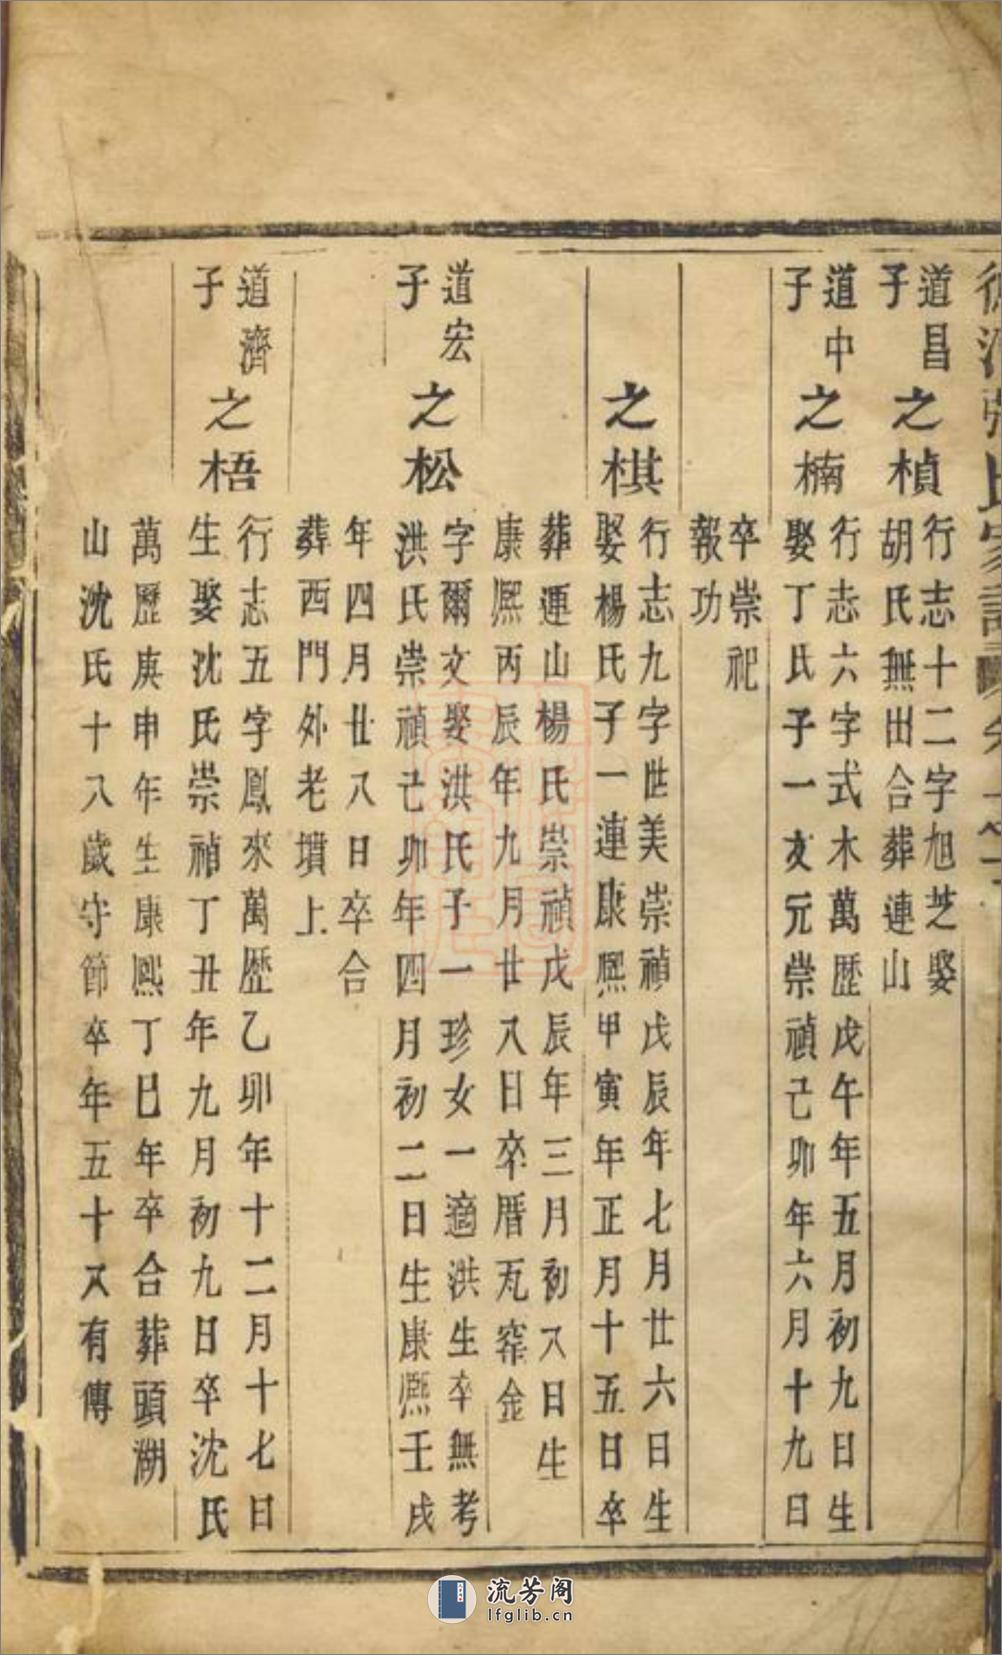 道昌子
之楨
行志十二字旭芝娶
胡氏無出合葬連山
道中子
之楠
行志六字式木萬歷戊午年五月初九日生
娶丁氏子一友元崇禎己卯年六月十九日
卒崇祀
報功
之棋
行志九字世美崇禎戊辰年七月廿六日生
娶楊氏子一連康熙甲寅年正月十五日卒
葬連山楊氏崇禎戊辰年三月初八日生
康熙丙辰年九月廿八日卒厝瓦窑金
道宏子
之松
字爾文娶洪氏子一珍女一適洪生卒無考
洪氏崇禎己卯年四月初二日生康熙壬戌
年四月廿八日卒合
葬西門外老墳上
道濟子
之梧
行志五字鳳來萬歷乙卯年十二月十七日
生娶沈氏崇禎丁丑年九月初九日卒沈氏
萬歷庚申年生康熙丁巳年卒合葬頭湖
山沈氏十八歲守節卒年五十八有傳
流芳阁
lfglib.cn